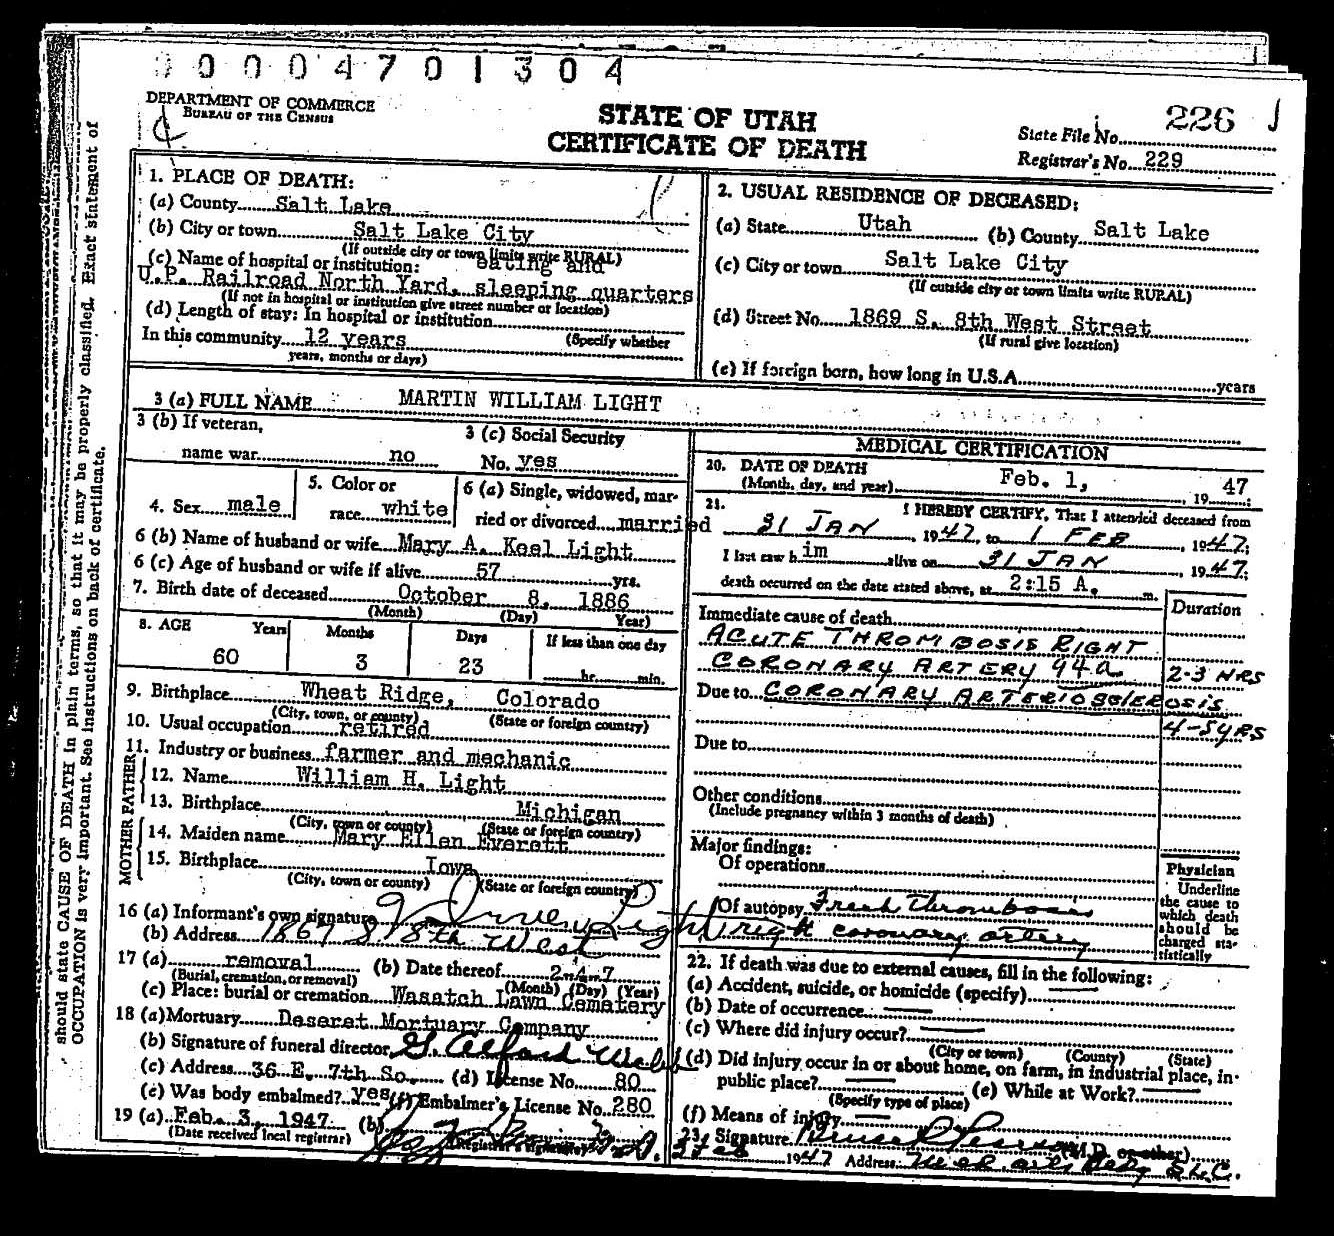 0 0 0 0 4 7 0 1 3 0 4
DEPARTMENT OF COMMERCE
BUREAU OF THE CENSUS
STATE OF UTAH
CERTIFICATE OF DEATH
State File No. 226
Registrar's No. 229
should state CAUSE OF DEATH in plain terms, so that it may be properly classified. Exact statement of
OCCUPATION is very important. See instructions on back of certificate.
1. PLACE OF DEATH:
(a) County Salt Lake
(b) City or town Salt Lake City
(If outside city or town limits write RURAL)
(c) Name of hospital or institution: eating and
U.P. Railroad North Yard, sleeping quarters
(If not in hospital or institution give street number or location)
(d) Length of stay: In hospital or institution
In this community 12 years (Specify whether
years, months or days)
2. USUAL RESIDENCE OF DECEASED:
(a) State Utah (b) County Salt Lake
(c) City or town Salt Lake City
(If outside city or town limits write RURAL)
(d) Street No. 1869 S. 8th West Street
(If rural give location)
(e) If foreign born, how long in U.S.A. years
3 (a) FULL NAME MARTIN WILLIAM LIGHT
3 (b) If veteran,
name war no
3 (c) Social Security
No. yes
4. Sex male
5. Color or
race white
6 (a) Single, widowed, mar-
ried or divorced married
6 (b) Name of husband or wife Mary A. Keel Light
6 (c) Age of husband or wife if alive 57 yrs.
7. Birth date of deceased October 8, 1886
(Month) (Day) Year)
8. AGE Years Months Days If less than one day
60 3 23 hr. min.
9. Birthplace Wheat Ridge, Colorado
(City, town, or county) (State or foreign country)
10. Usual occupation retired
11. Industry or business farmer and mechanic
FATHER
12. Name William H. Light
13. Birthplace Michigan
(City, town or county) (State or foreign country)
MOTHER
14. Maiden name Mary Ellen Everett
15. Birthplace Iowa
(City, town or county) (State or foreign country)
16 (a) Informant's own signature Light
(b) Address 1867 S 8th West
17 (a) removal (b) Date thereof 2-4-7
(Burial, cremation, or removal) (Month) (Day) (Year)
(c) Place: burial or cremation Wasatch Lawn Cemetery
18 (a) Mortuary Deseret Mortuary Company
(b) Signature of funeral director
(c) Address 36 E. 7th So. (d) License No. 80
(e) Was body embalmed? yes (f) Embalmer's License No. 280
19 (a) Feb. 3, 1947 (b)
(Date received local registrar) (Registrar's signature)
MEDICAL CERTIFICATION
20. DATE OF DEATH
(Month, day, and year) Feb. 1, , 19 47
21. I HEREBY CERTIFY, That I attended deceased from
31 JAN , 1947, to 1 FEB , 1947;
I last saw him alive on 31 JAN , 1947;
death occurred on the date stated above, at 2:15 A. m.
Duration
Immediate cause of death
ACUTE THROMBOSIS RIGHT
CORONARY ARTERY 94a 2-3 HRS
Due to CORONARY ARTERIOSCLEROSIS
4-5 YRS
Due to
Other conditions
(Include pregnancy within 3 months of death)
Major findings:
Of operations
Of autopsy Fresh thrombosis
right coronary artery
Physician
Underline
the cause to
which death
should be
charged sta-
tistically
22. If death was due to external causes, fill in the following:
(a) Accident, suicide, or homicide (specify)
(b) Date of occurrence
(c) Where did injury occur?
(City or town) (County) (State)
(d) Did injury occur in or about home, on farm, in industrial place, in
public place? (e) While at Work?
(Specify type of place)
(f) Means of injury
23. Signature (M.D. or other)
2 Feb 1947 Address S.L.C.